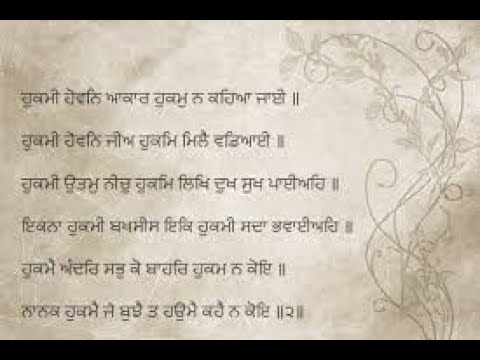 ਹੁਕਮੀ ਹੋਵਨਿ ਆਕਾਰ ਹੁਕਮੁ ਨ ਕਹਿਆ ਜਾਈ ॥
ਹੁਕਮੀ ਹੋਵਨਿ ਜੀਅ ਹੁਕਮਿ ਮਿਲੈ ਵਡਿਆਈ ॥
ਹੁਕਮੀ ਉਤਮੁ ਨੀਚੁ ਹੁਕਮਿ ਲਿਖਿ ਦੁਖ ਸੁਖ ਪਾਈਅਹਿ ॥
ਇਕਨਾ ਹੁਕਮੀ ਬਖਸੀਸ ਇਕਿ ਹੁਕਮੀ ਸਦਾ ਭਵਾਈਅਹਿ ॥
ਹੁਕਮੈ ਅੰਦਰਿ ਸਭੁ ਕੋ ਬਾਹਰਿ ਹੁਕਮ ਨ ਕੋਇ ॥
ਨਾਨਕ ਹੁਕਮੈ ਜੇ ਬੁਝੈ ਤ ਹਉਮੈ ਕਹੈ ਨ ਕੋਇ ॥੨॥